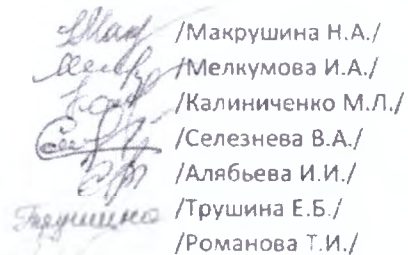 /Макрушина Н.А./
/Мелкумова И.А./
/Калиниченко М.Л./
/Селезнева В.А./
/Алябьева И.И./
Трушина /Трушина Е.Б./
/Романова Т.И./